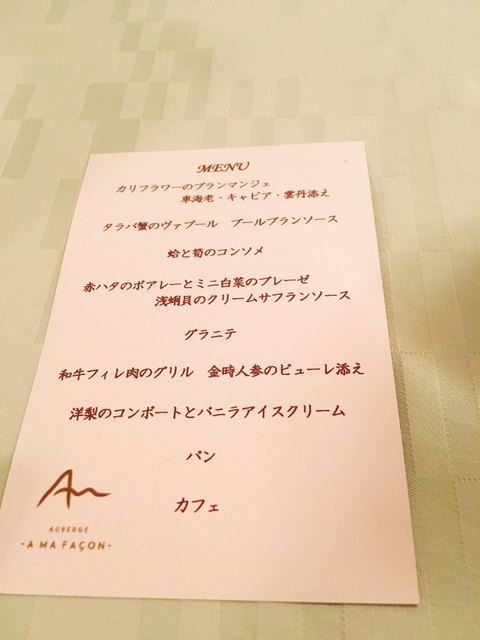 MENU
カリフラワーのブランマンジェ
車海老・キャビア・雲丹添え
タラバ蟹のヴァプール ブールブランソース
蛤と筍のコンソメ
赤ハタのポアレーとミニ白菜のブレーゼ
浅蜊貝のクリームサフランソース
グラニテ
和牛フィレ肉のグリル 金時人参のピューレ添え
洋梨のコンポートとバニラアイスクリーム
パン
カフェ
An
AUBERGE
-A MA FAÇON-